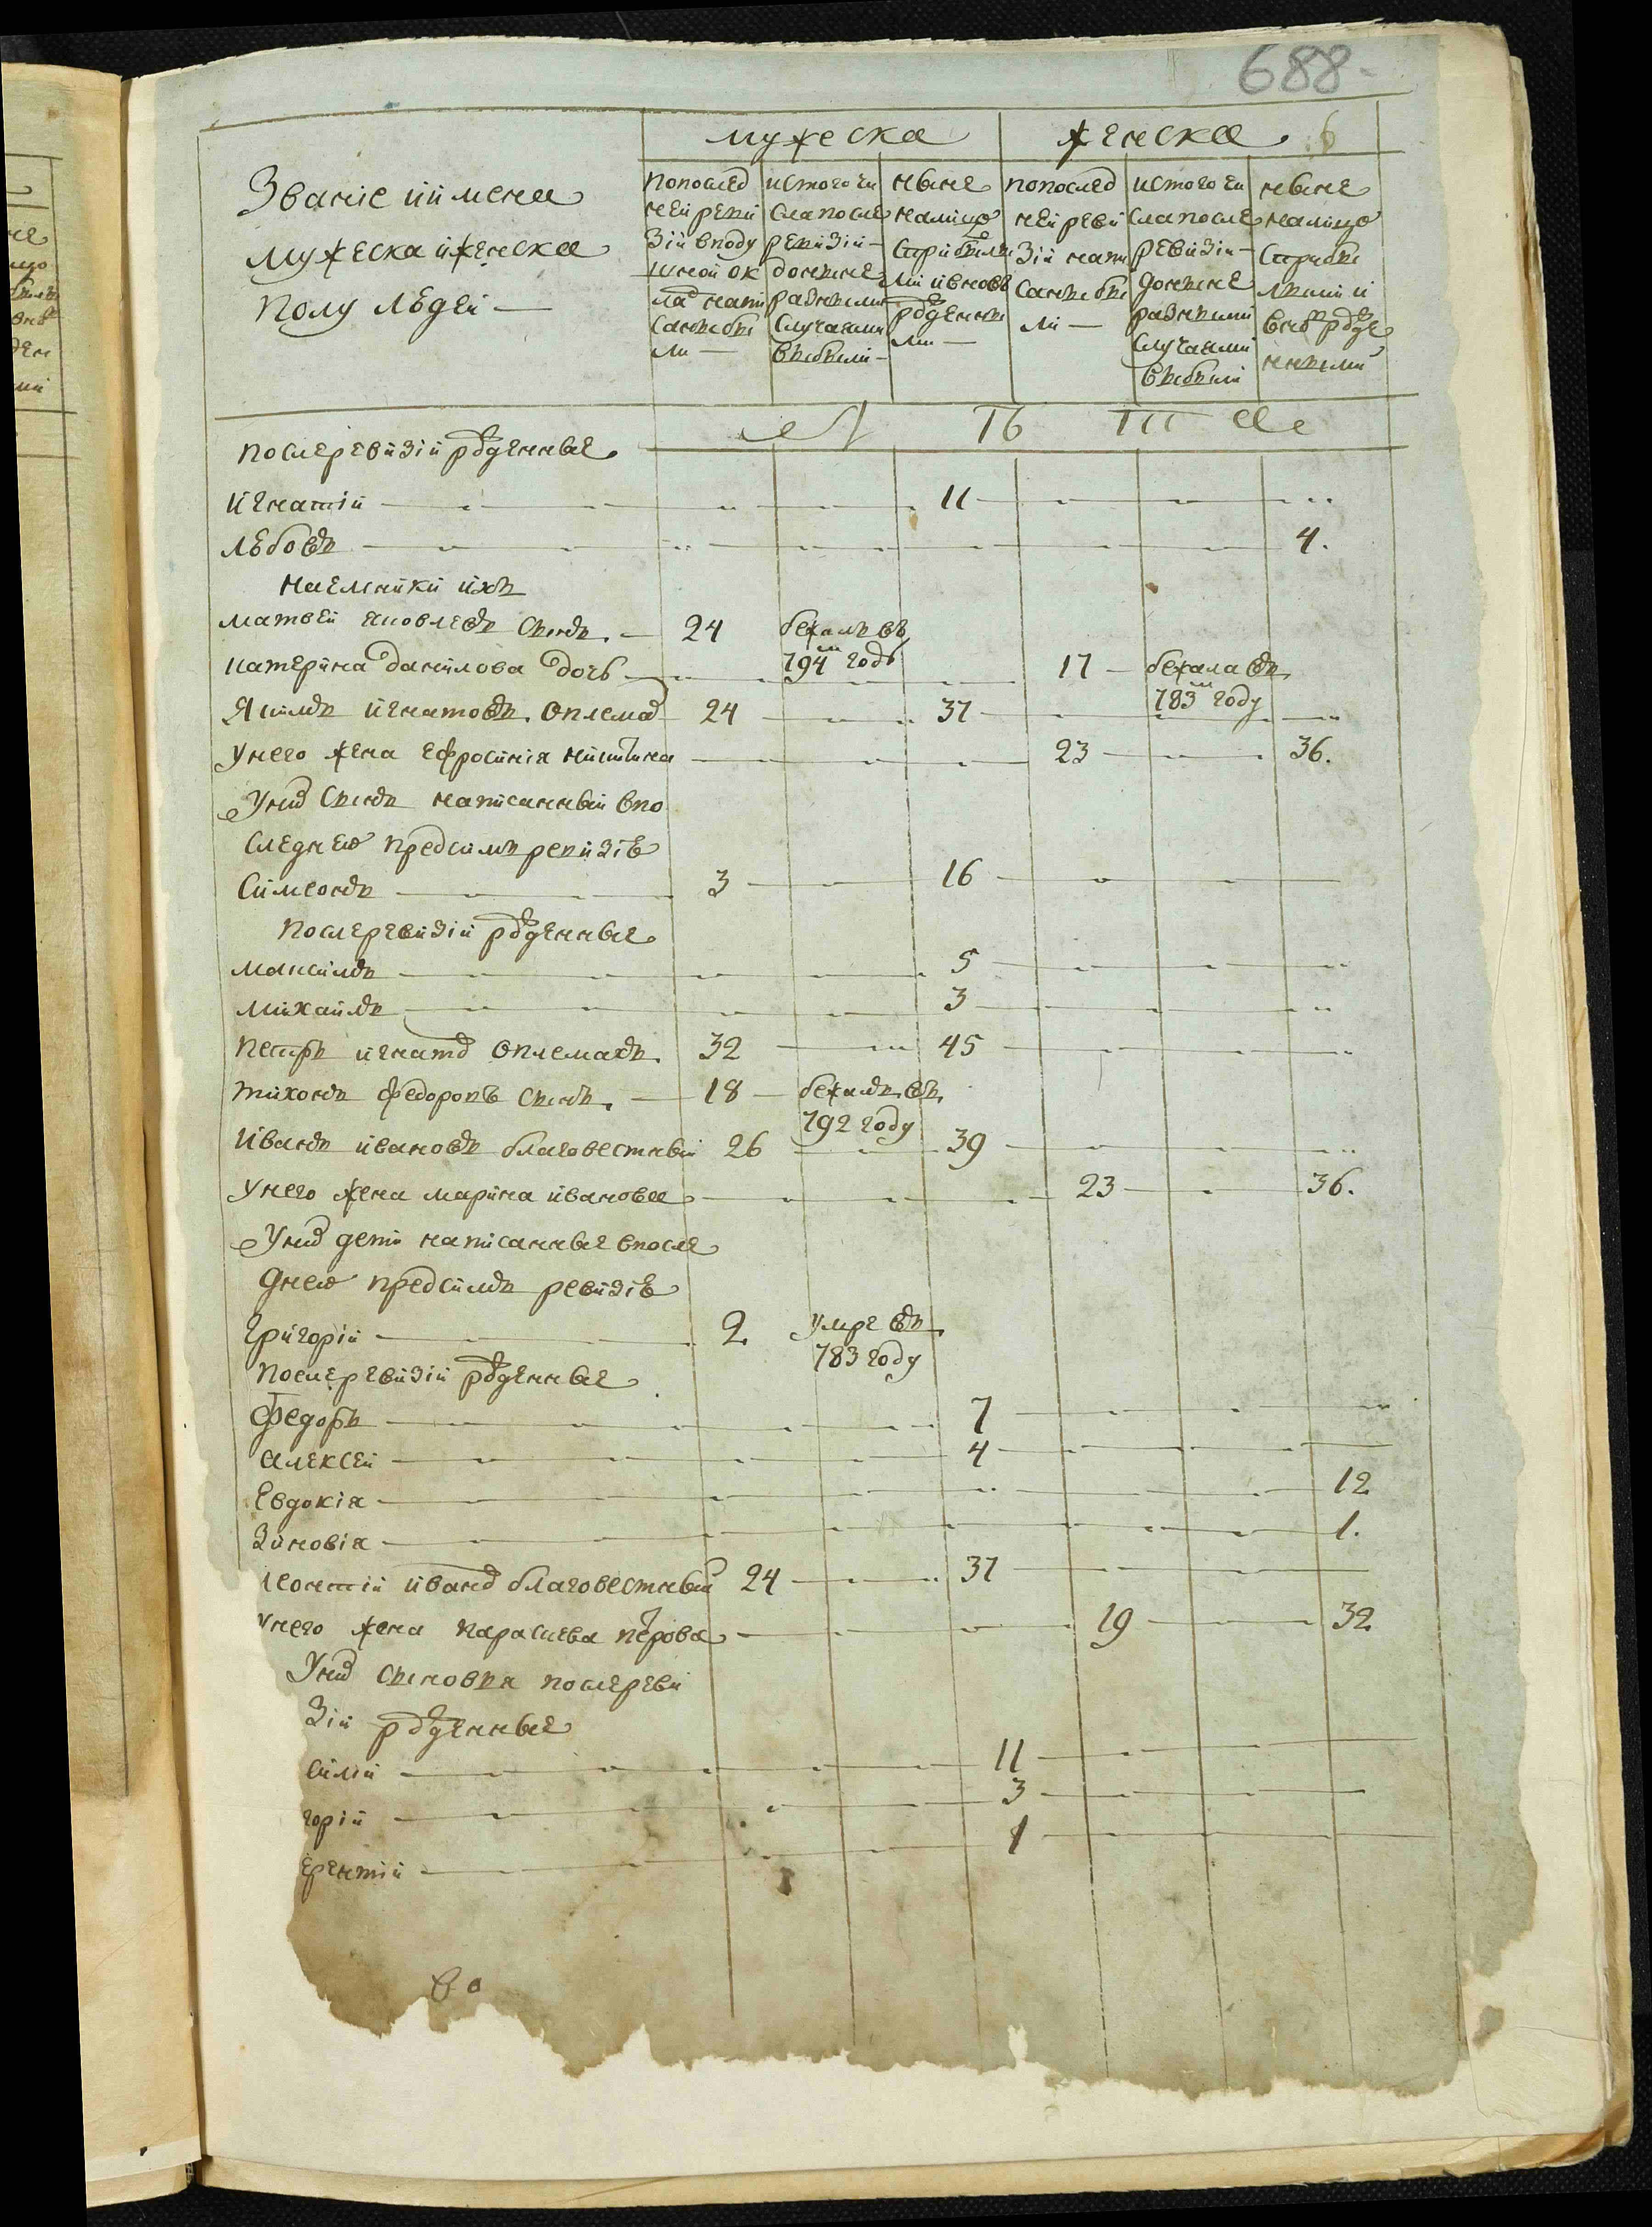 688
мужеска женска 6
Званіе и имена
мужеска и женска
полу людей —
попослед
ней реви
зіи вподу
шной ок
ладъ напи
санные бы
ли —
истого чи
сла после
ревизіи —
доныне
разными
случаями
выбыли —
ныне
налицо
съ прибылы
ми и вновь
рожденны
ми —
попослед
ней реви
зіи напи
санные бы
ли —
истого чи
сла после
ревизіи —
доныне
разными
случаями
выбыли
ныне
налицо
съ прибы
лыми и
вновь рожде
нными
Л Ѣ Т А
после ревизіи рожденные
игнатій 11
любовь 4.
наемники ихъ
матвей яковлевъ сынъ 24 бежалъ въ
794м годе
катерина данилова дочь 17 бежала въ
783м году
Якимъ игнатовъ оплемах 24 37
унего жена ефросинія никитина 23 36.
Уних сынъ написанный впо
следнею предсимъ ревизію
симеонъ 3 16
после ревизіи рожденные
максимъ 5
михайлъ 3
петръ игнатов оплемахъ 32 45
тихонъ федоровъ сынъ 18 бежалъ въ
792 году
иванъ ивановъ благовестный 26 39
унего жена марина иванова 23 36.
Уних дети написанные впосле
днею предсимъ ревизію
григорій 2 умре въ
783 году
после ревизіи рожденные
федоръ 7
алексей 4
Евдокія 12
Зиновія 1.
леонтій иванов благовестный 24 37
унего жена параскева петрова 19 32
Уних сыновья после реви
зіи рожденные
силій 11
горій 3
ерентій 1
во